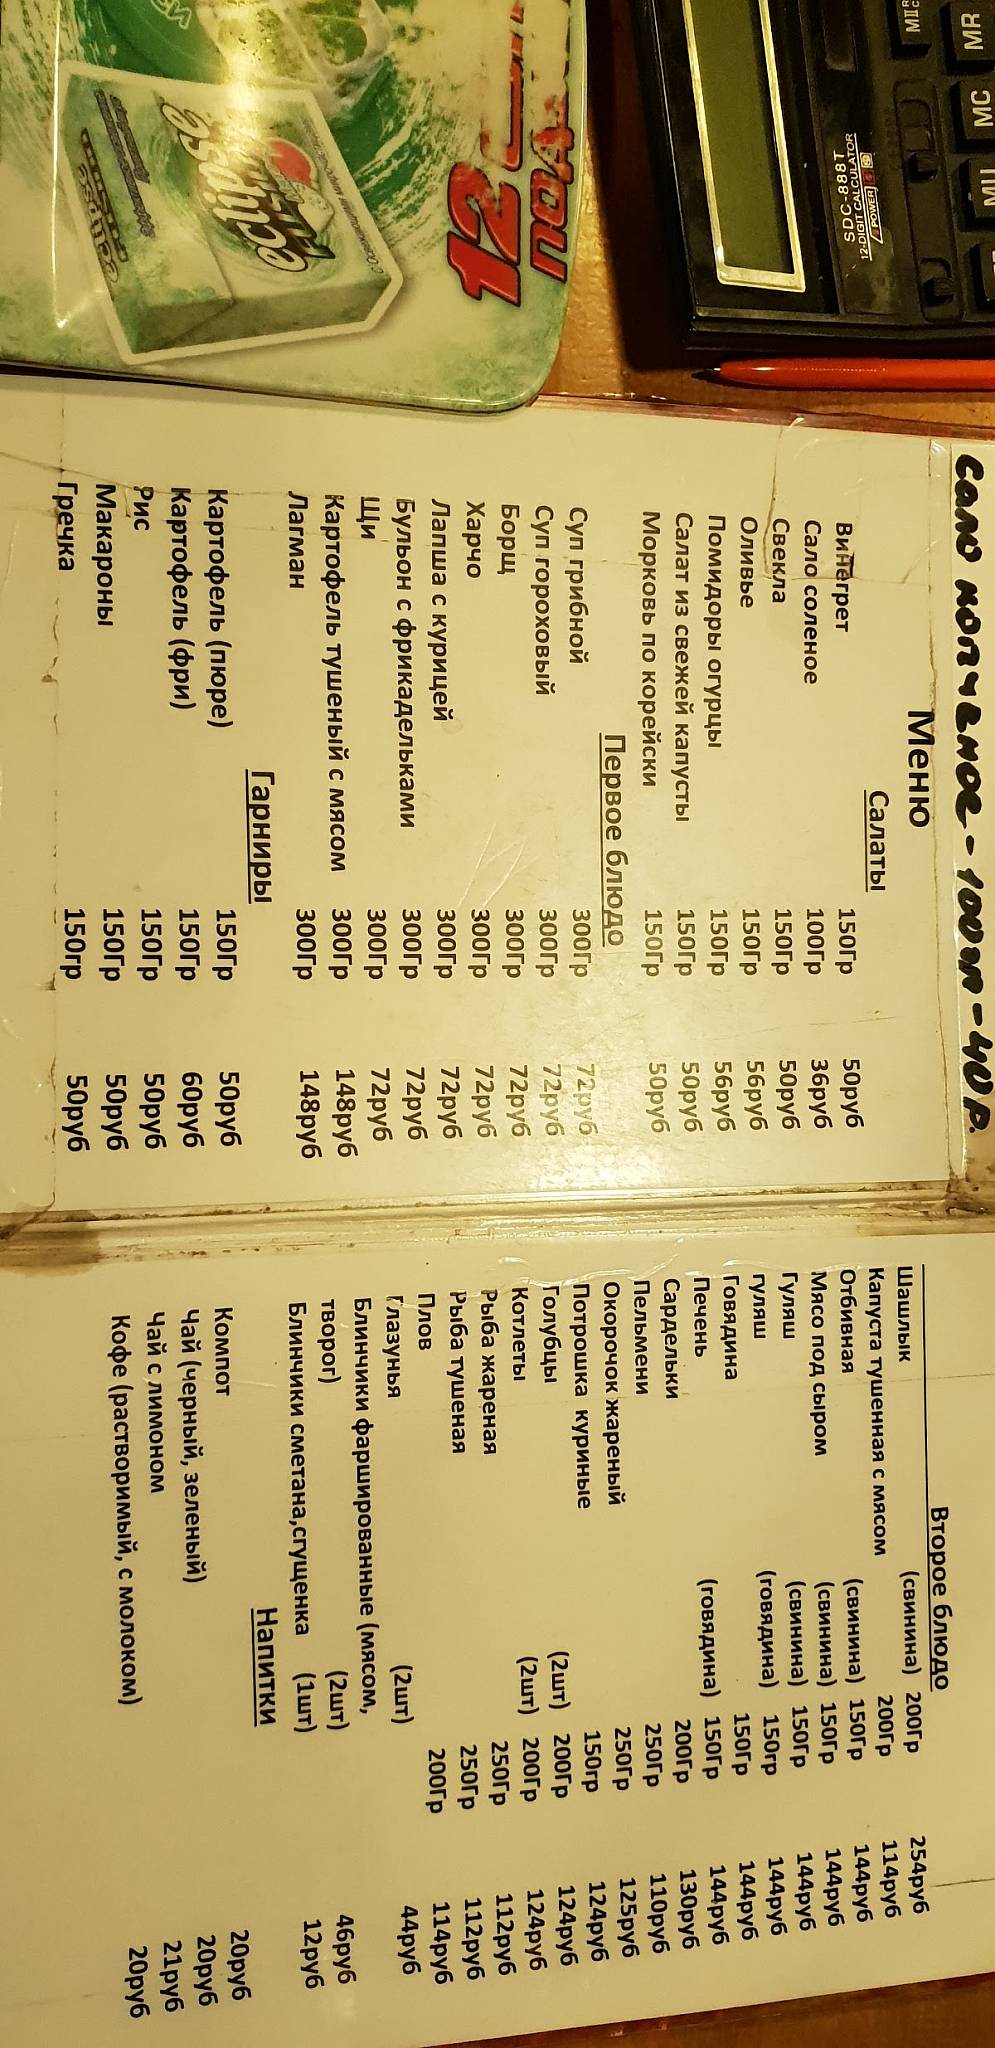 12
ПОД
eclipse
eclipse
MII
MR
MC
SDC-888T
12-DIGIT CALCULATOR
POWER
сало копченое - 100гр - 40р.
Меню
Салаты
Винегрет 150Гр 50руб
Сало соленое 100Гр 36руб
Свекла 150Гр 50руб
Оливье 150Гр 56руб
Помидоры огурцы 150Гр 56руб
Салат из свежей капусты 150Гр 50руб
Морковь по корейски 150Гр 50руб
Первое блюдо
Суп грибной 300Гр 72руб
Суп гороховый 300Гр 72руб
Борщ 300Гр 72руб
Харчо 300Гр 72руб
Лапша с курицей 300Гр 72руб
Бульон с фрикадельками 300Гр 72руб
Щи 300Гр 72руб
Картофель тушеный с мясом 300Гр 148руб
Лагман 300Гр 148руб
Гарниры
Картофель (пюре) 150Гр 50руб
Картофель (фри) 150Гр 60руб
Рис 150Гр 50руб
Макароны 150Гр 50руб
Гречка 150гр 50руб
Второе блюдо
Шашлык (свинина) 200Гр 254руб
Капуста тушенная с мясом 200Гр 114руб
Отбивная (свинина) 150Гр 144руб
Мясо под сыром (свинина) 150Гр 144руб
Гуляш (свинина) 150Гр 144руб
гуляш (говядина) 150гр 144руб
Говядина 150Гр 144руб
Печень (говядина) 150Гр 144руб
Сардельки 200Гр 130руб
Пельмени 250Гр 110руб
Окорочок жареный 250Гр 125руб
Потрошка куриные 150гр 124руб
Голубцы (2шт) 200Гр 124руб
Котлеты (2шт) 200Гр 124руб
Рыба жареная 250Гр 112руб
Рыба тушеная 250Гр 112руб
Плов 200Гр 114руб
Глазунья (2шт) 44руб
Блинчики фаршированные (мясом,
творог) (2шт) 46руб
Блинчики сметана,сгущенка (1шт) 12руб
Напитки
Компот 20руб
Чай (черный, зеленый) 20руб
Чай с лимоном 21руб
Кофе (растворимый, с молоком) 20руб